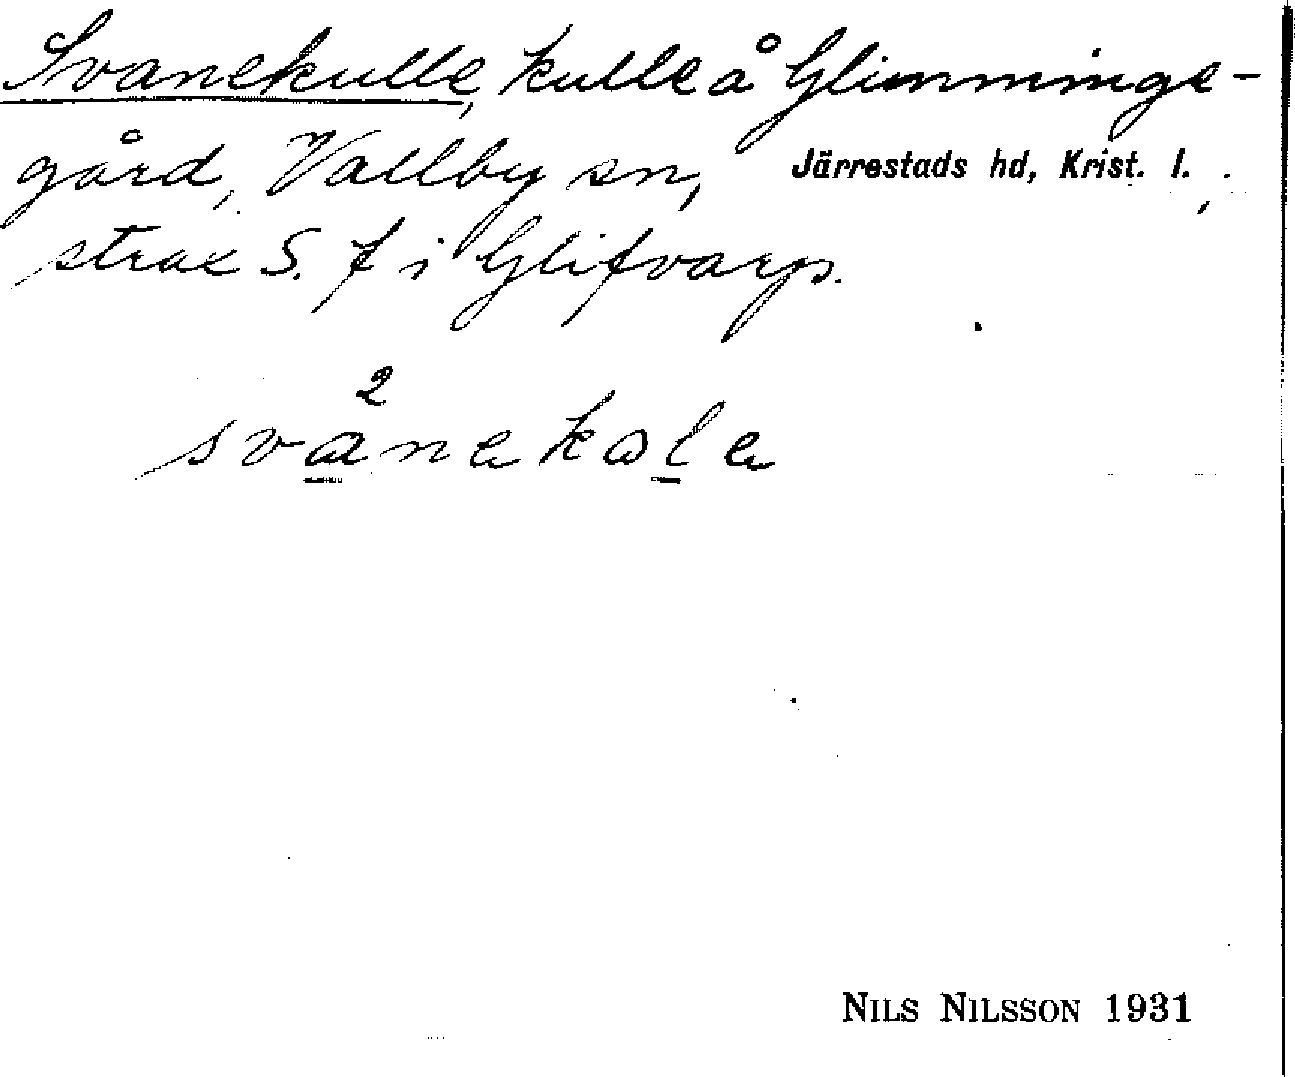 Svanekulle, kulle å Glimminge-
gård, Vallby sn, Järrestads hd, Krist. l.
strax S. f i Glifvarp.
2
svanekole
NILS NILSSON 1931